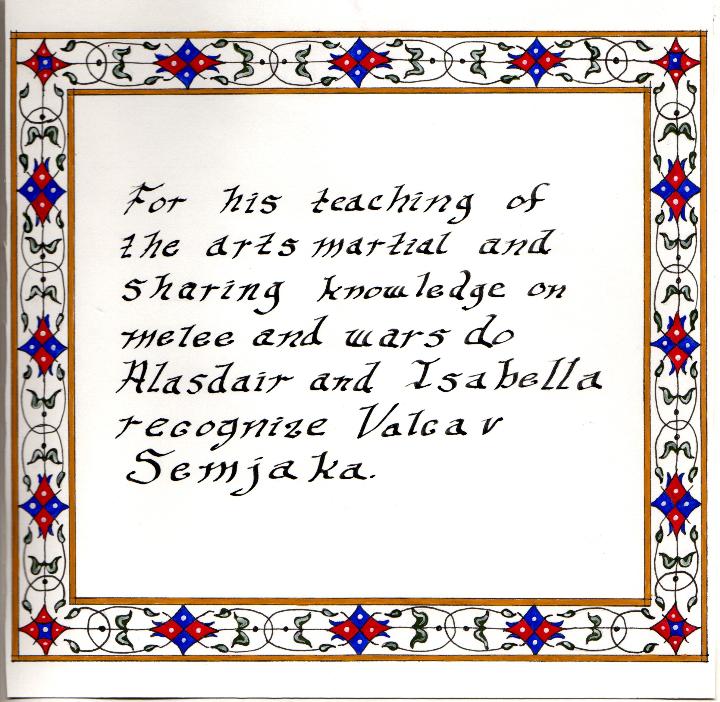 For his teaching of
the arts martial and
sharing knowledge on
melee and wars do
Alasdair and Isabella
recognize Valcav
Semjaka.